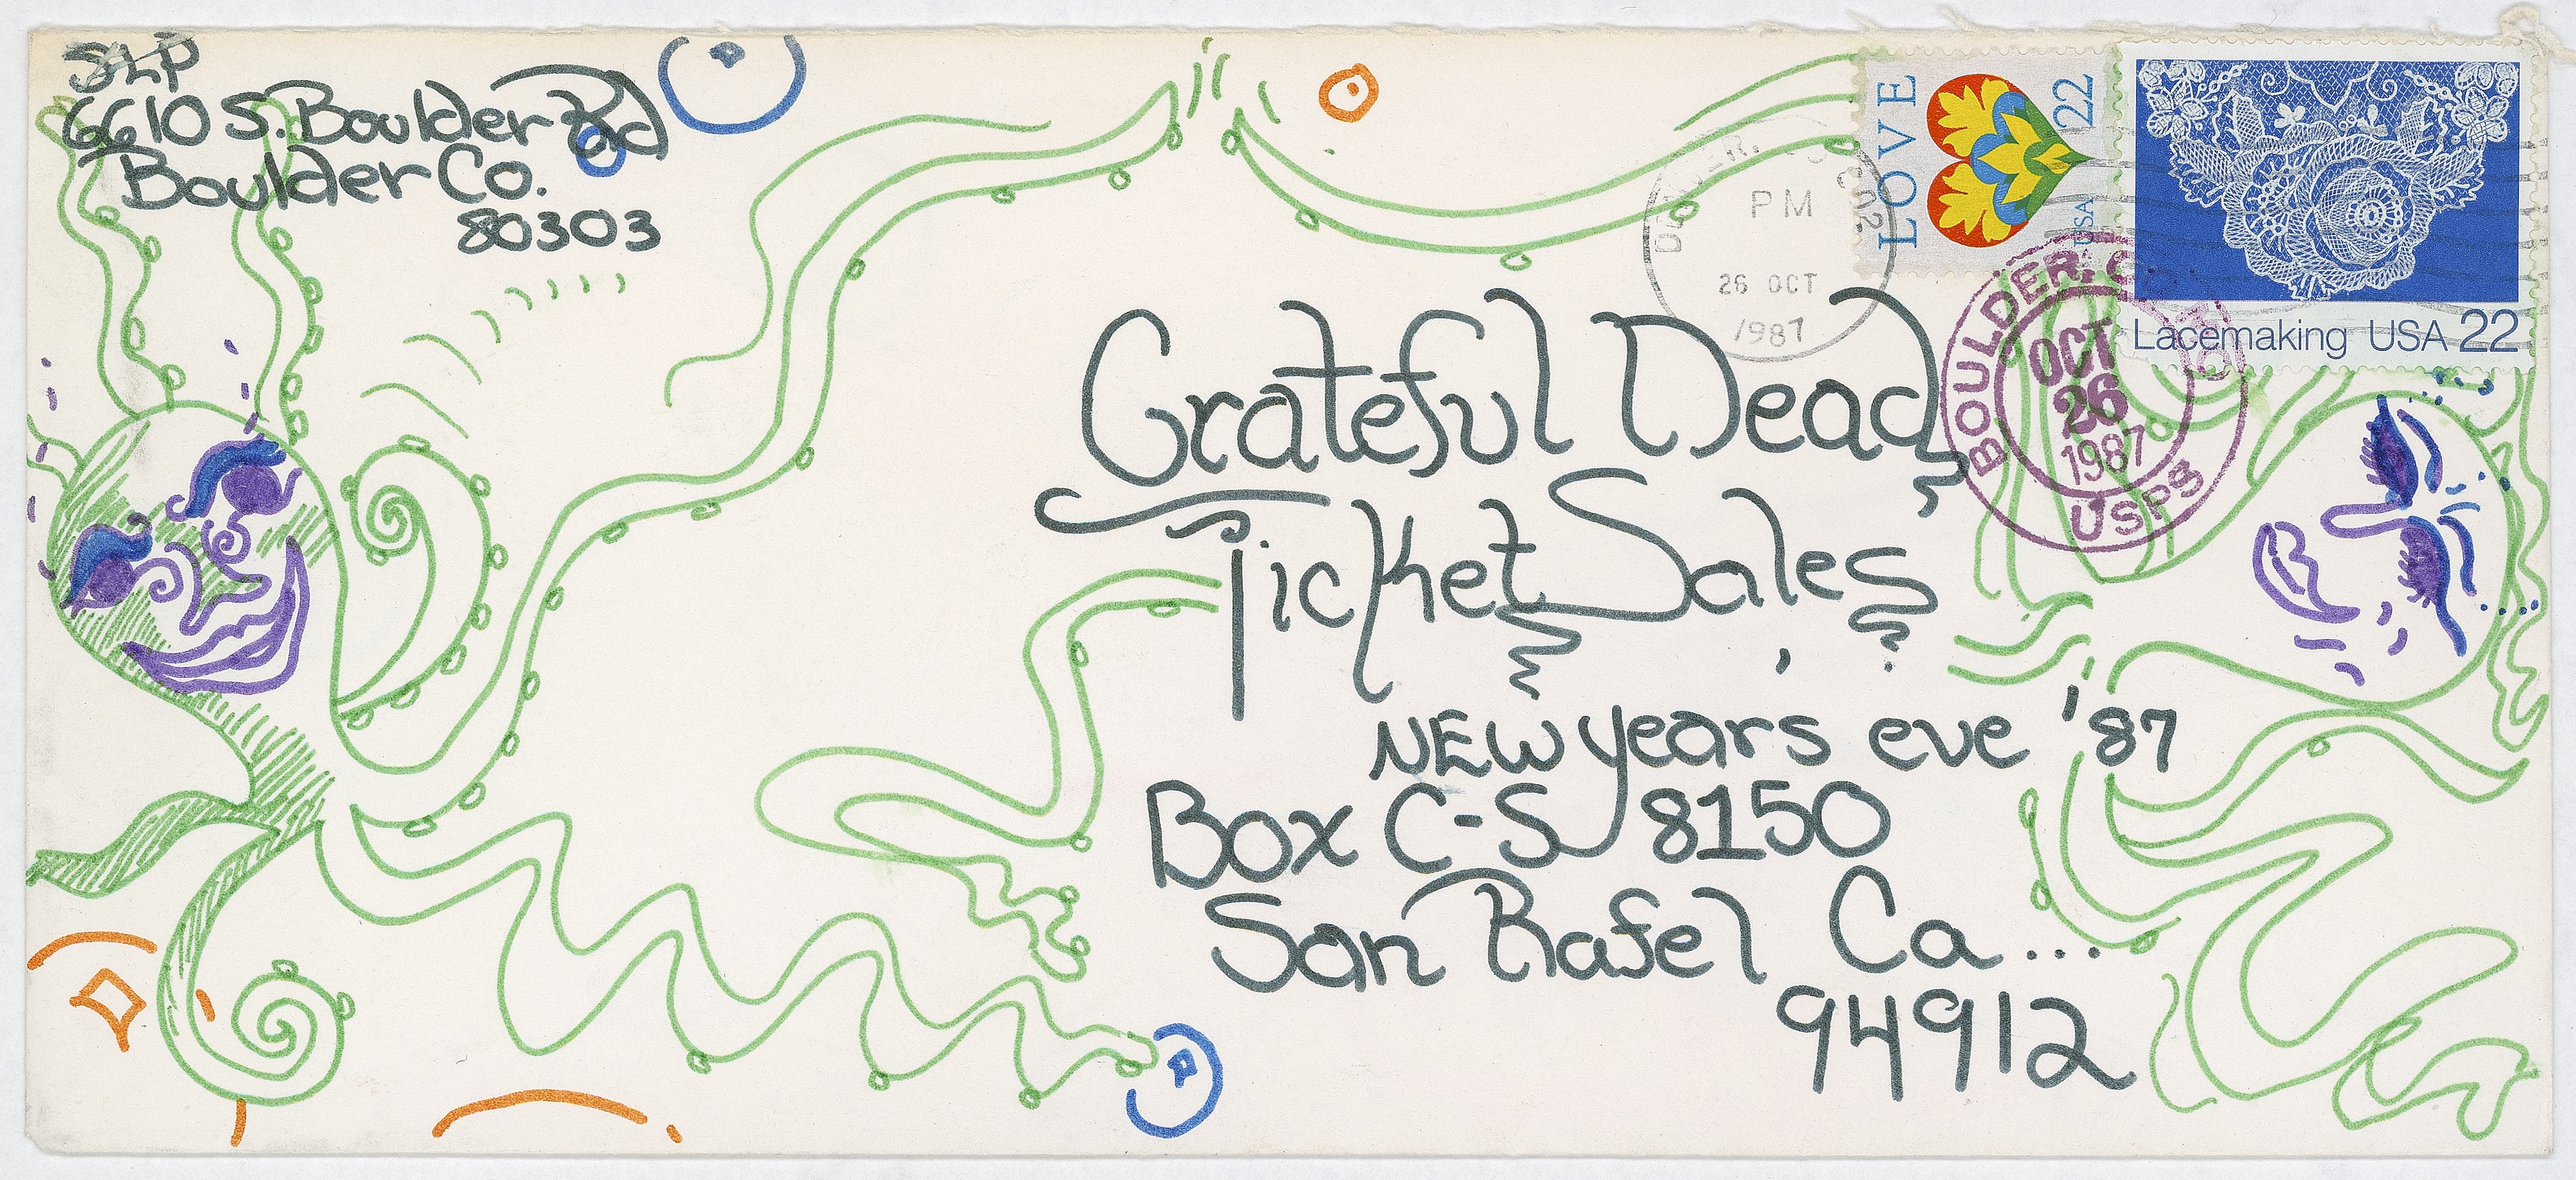 JLP
6610 S. Boulder Rd
Boulder Co.
80303
LOVE
USA 22
Lacemaking USA 22
PM
26 OCT
1987
BOULDER, CO
OCT
26
1987
USPS
Grateful Dead
Ticket Sales
NEW years eve '87
Box C-S 8150
San Rafel Ca...
94912